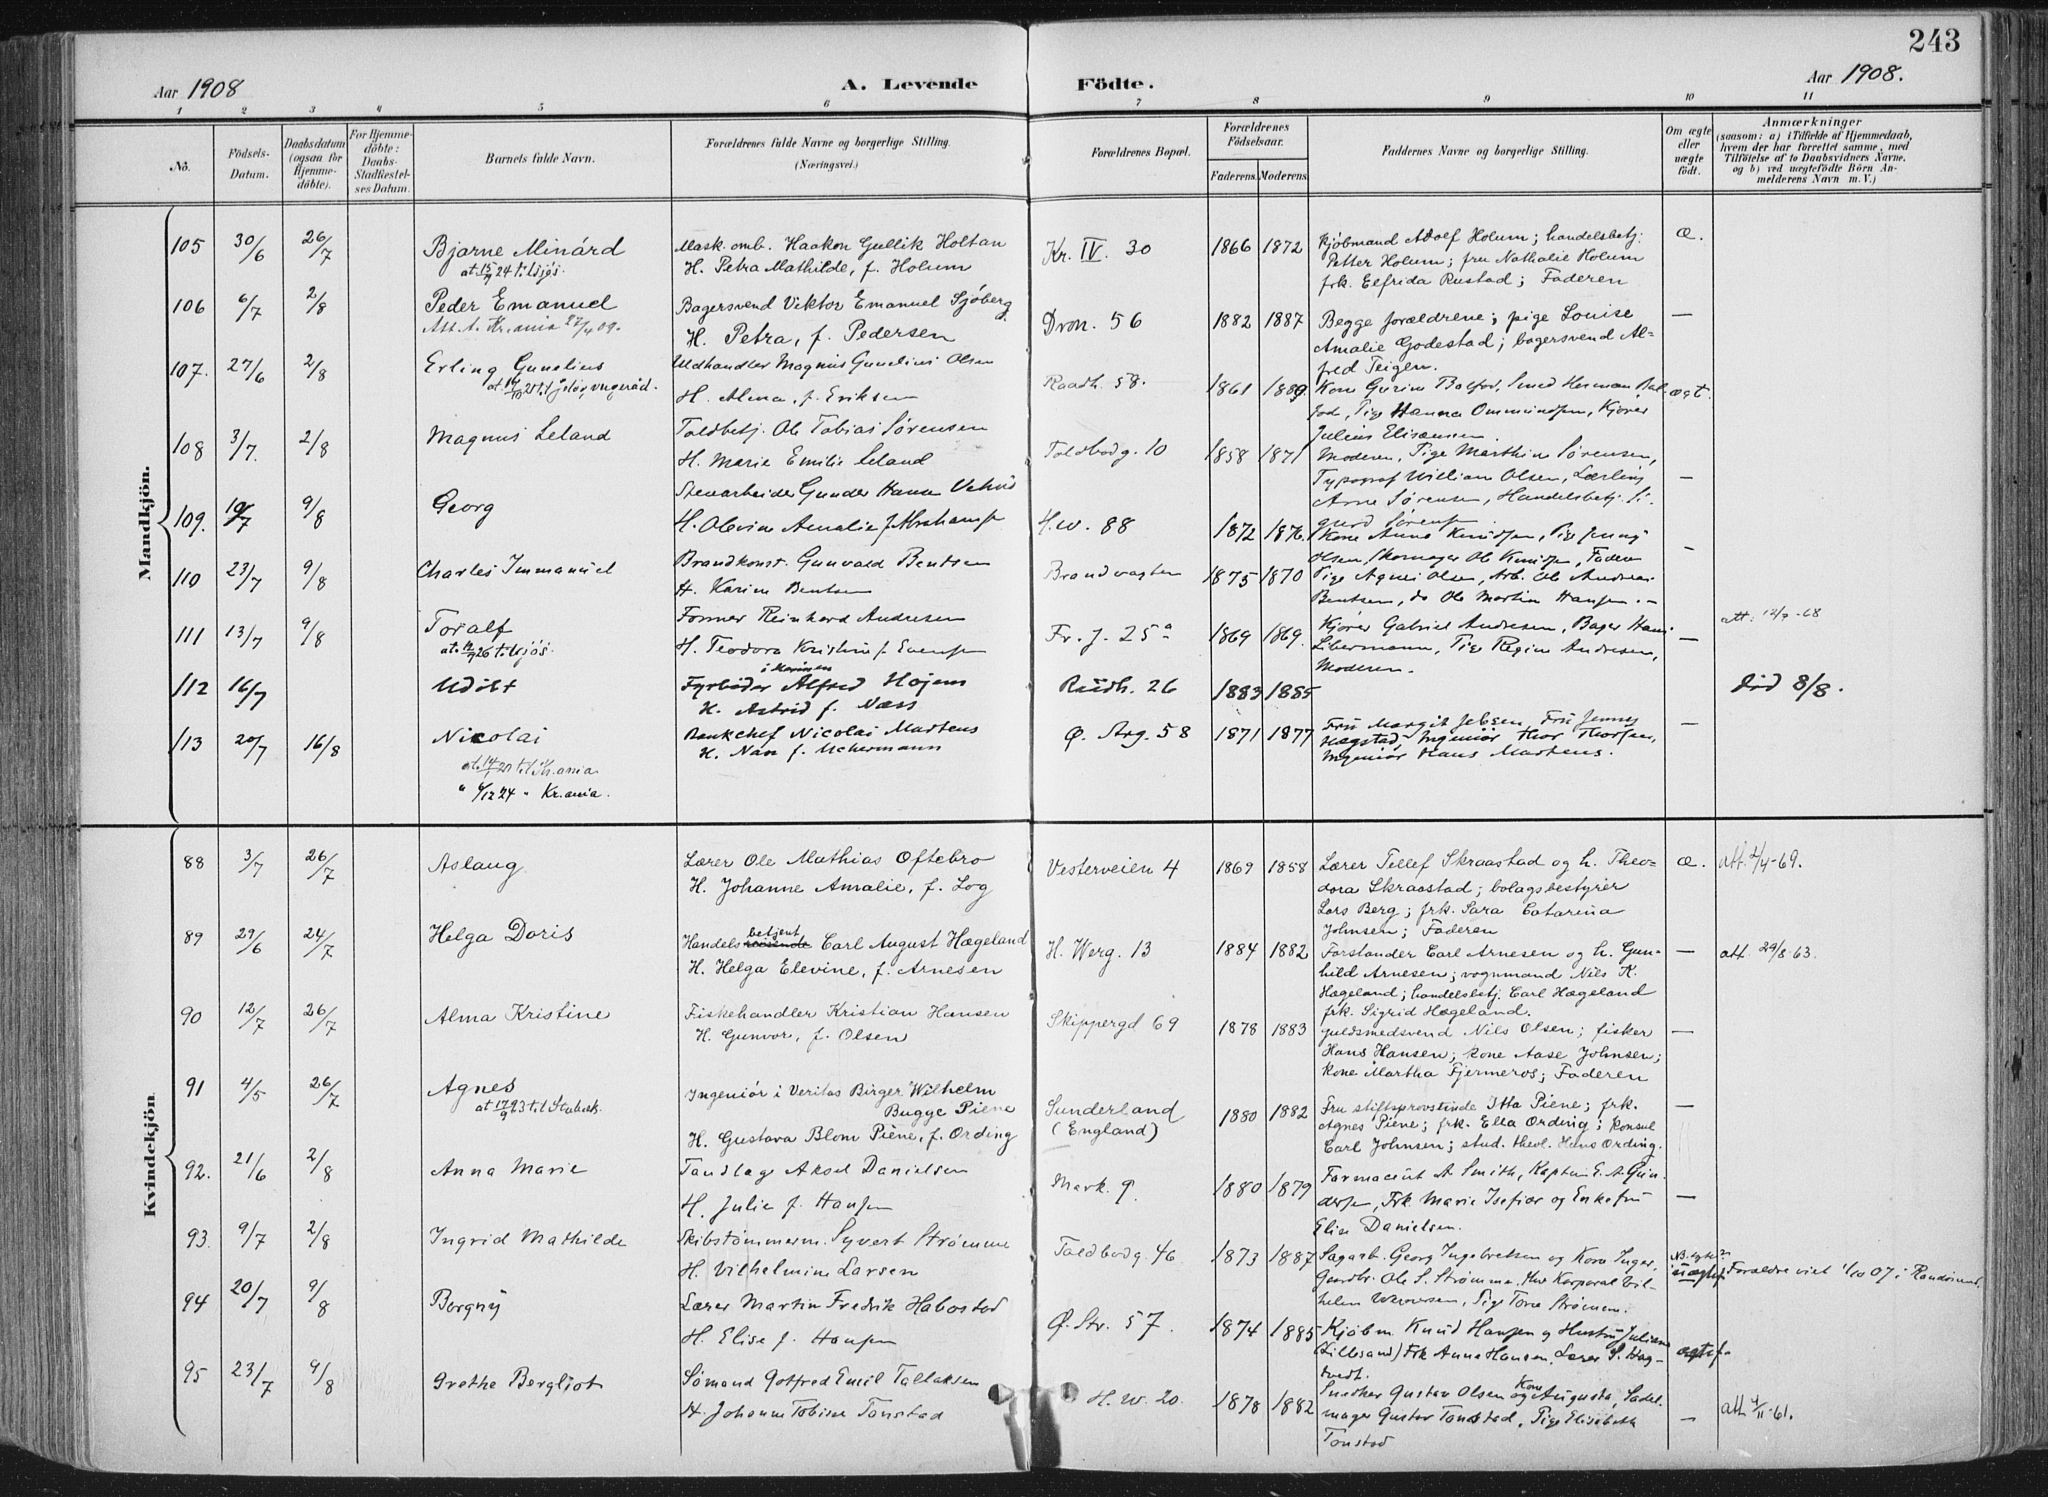 243
Aar 1908
A. Levende
Födte.
Aar 1908.
1 2 3 4 5 6 7 8 9 10 11
No.
Födsels-
Datum.
Daabsdatum
(ogsaa för
Hjemme-
döbte).
For Hjemme-
döbte:
Daabs-
Stadfæstel-
ses Datum.
Barnets fulde Navn.
Forældrenes fulde Navne og borgerlige Stilling.
(Næringsvei.)
Forældrenes Bopæl.
Forældrenes
Födselsaar.
Faderens. Moderens.
Faddernes Navne og borgerlige Stilling.
Om ægte
eller
uægte
födt.
Anmærkninger
(saasom: a) i Tilfælde af Hjemmedaab,
hvem der har forrettet samme, med
Tilföielse af to Daabsvidners Navne,
og b) ved uægtefödte Börn An-
melderens Navn m. V.)
Mandkjön.
105 30/6 26/7 Bjarne Minárd
at. 15/9 24 t. Usjøs.
Mask. omb. Haakon Gullik Holtan
H. Petra Mathilde, f. Holum
Kr. IV. 30 1866 1872
Kjøbmand Adolf Holum; handelsbetj.
Petter Holum; fru Nathalie Holum
frk. Elfrida Rustad; Faderen
æ.
106 6/7 2/8 Peder Emanuel
Att. t. Kr.ania 27/4 09.
Bagersvend Viktor Emanuel Sjöberg
H. Petra, f. Pedersen
Dron. 56 1882 1887
Begge forældrene; pige Louise
Amalie Godestad; bagersvend Al-
fred Teigen.
—
107. 27/6 2/8 Erling Gunelius
Uldhandler Magnus Gunelius Olsen
H. Alma, f. Eriksen
Raadh. 58. 1861 1889
Kone Gurine, Smed Herman
Tige Hanna Ommundsen, Kjører
Julius Elisæusen.
ægt.
108 3/7. 2/8 Magnus Leland
Toldbetj. Ole Tobias Sørensen
H. Marie Emilie Leland
Toldbodg. 10 1858 1871
Moderen, Pige Marthin Sørensen,
Typograf William Olsen, Lærling
Arne Sørensen, Handelsbetj. Si-
gurd Sørensen.
—
109. 10/7 9/8 Georg
Stenarbeider Gunder Hansen
H. Olevine Amalie f. Abrahamsen
H.W. 88 1872 1876.
Kone Anna Knudsen, Pige Jenny
Olsen, Skomager Ole Knudsen, Faderen
—
110 23/7 9/8 Charles Immanuel
Brandkonst. Gunvald Bentsen
H. Karine Bentsen
Brandvagten 1875 1870
Pige Agnes Olsen, Arb. Ole Andreas
Bentsen, do Ole Martin Hansen. —
111 13/7 9/8 Toralf
Former Reinhard Andresen
H. Teodora Kristine f. Evensen
Fr. J. 25a 1869 1869.
Kjører Gabriel Andresen, Bager Hans
Libermann, Pige Regine Andresen,
Moderen.
—
112 16/7 Udøbt
i Marinen
Fyrbøder Alfred Hojem
H. Astrid f. Næss
Raadh. 26 1883 1885
død 8/8.
113 20/7 16/8 Nicolai
at. 14/1 20 til Kr.ania
" 6/12 24 " Kr.ania.
Bankchef Nicolai Martens
H. Nan f. Uchermann
Ø. Str. 58 1871 1877
Fru Margit Jebsen, Fru Jenny
Hægstad, Ingeniør Thor Thorsen,
Ingeniør Hans Martens.
—
Kvindekjön.
88 3/7 26/7 Aslaug
Lærer Ole Mathias Oftebro
H. Johanne Amalie, f. Log
Vesterveien 4 1869 1858
Lærer Tellef Skraastad og h. Theo-
dora Skraastad; bolagsbestyrer
Lars Berg; frk. Sara Catarina
Johnsen; Faderen
æ. att. 2/4-69.
89 29/6 24/7 Helga Doris
betjent
Handelsreisende Carl August Hægeland
H. Helga Elevine, f. Arnesen
H. Werg. 13 1884 1882
Forstander Carl Arnesen og h. Gun-
hild Arnesen; vognmand Nils K.
Hægeland; handelsbetj. Carl Hægeland
frk. Sigrid Hægeland.
— att. 29/8-63.
90 12/7 26/7 Alma Kristine
Fiskehandler Kristian Hansen
H. Gunvor, f. Olsen
Skippergd 69 1878 1883
guldsmedsvend Nils Olsen; fisker
Hans Hansen; kone Aase Johnsen;
kone Martha Fjermeros; Faderen
—
91 4/5 26/7 Agnes
Ingeniør i Veritas Birger Wilhelm
Bugge Piene
H. Gustava Blom Piene, f. Ording
Sunderland
(England)
1880 1882
Fru stiftsprovstinde Itta Piene; frk.
Agnes Piene; frk. Ella Ording; konsul
Carl Johnsen; stud. theol. Hans Ording.
—
92. 21/6 2/8 Anna Marie
Tandlæge Aksel Danielsen
H. Julie f. Hansen
Mark. 9. 1880 1879
Farmaceut A. Smith, Kaptein E. A. Gun-
dersen, Frk Marie Isefiær og Enkefru
Elise Danielsen.
—
93. 9/7 2/8 Ingrid Mathilde
Skibstømmerm. Syvert Strømme
H. Vilhelmine Larsen
Toldbodg. 46 1873 1887
Sagarb. Georg Ingebretsen og Kone Inger,
Gaardbr. Ole S. Strømme, Korporal Vil-
helm Wernersen, Pige Tora Strømme.
Forældre viet 1/10 07 i Randøsund
94 20/7 9/8 Borgny
Lærer Martin Fredrik Habostad
H. Elise f. Hansen
Ø. Str. 57. 1874 1885
Kjøbm. Knud Hansen og Hustru Juliane
(Lillesand) Frk Anna Hansen, Lærer S. Hog-
stvedt.
95 23/7 9/8 Grethe Bergliot
Sømand Gotfred Emil Tallaksen
H. Johanne Tobine Tonstad
H. W. 20. 1878 1882
Kone
Snedker Gustav Olsen og Augusta, Sadel-
mager Gustav Tonstad, Pige Elisabeth
Tonstad
— att. 4/11-61.